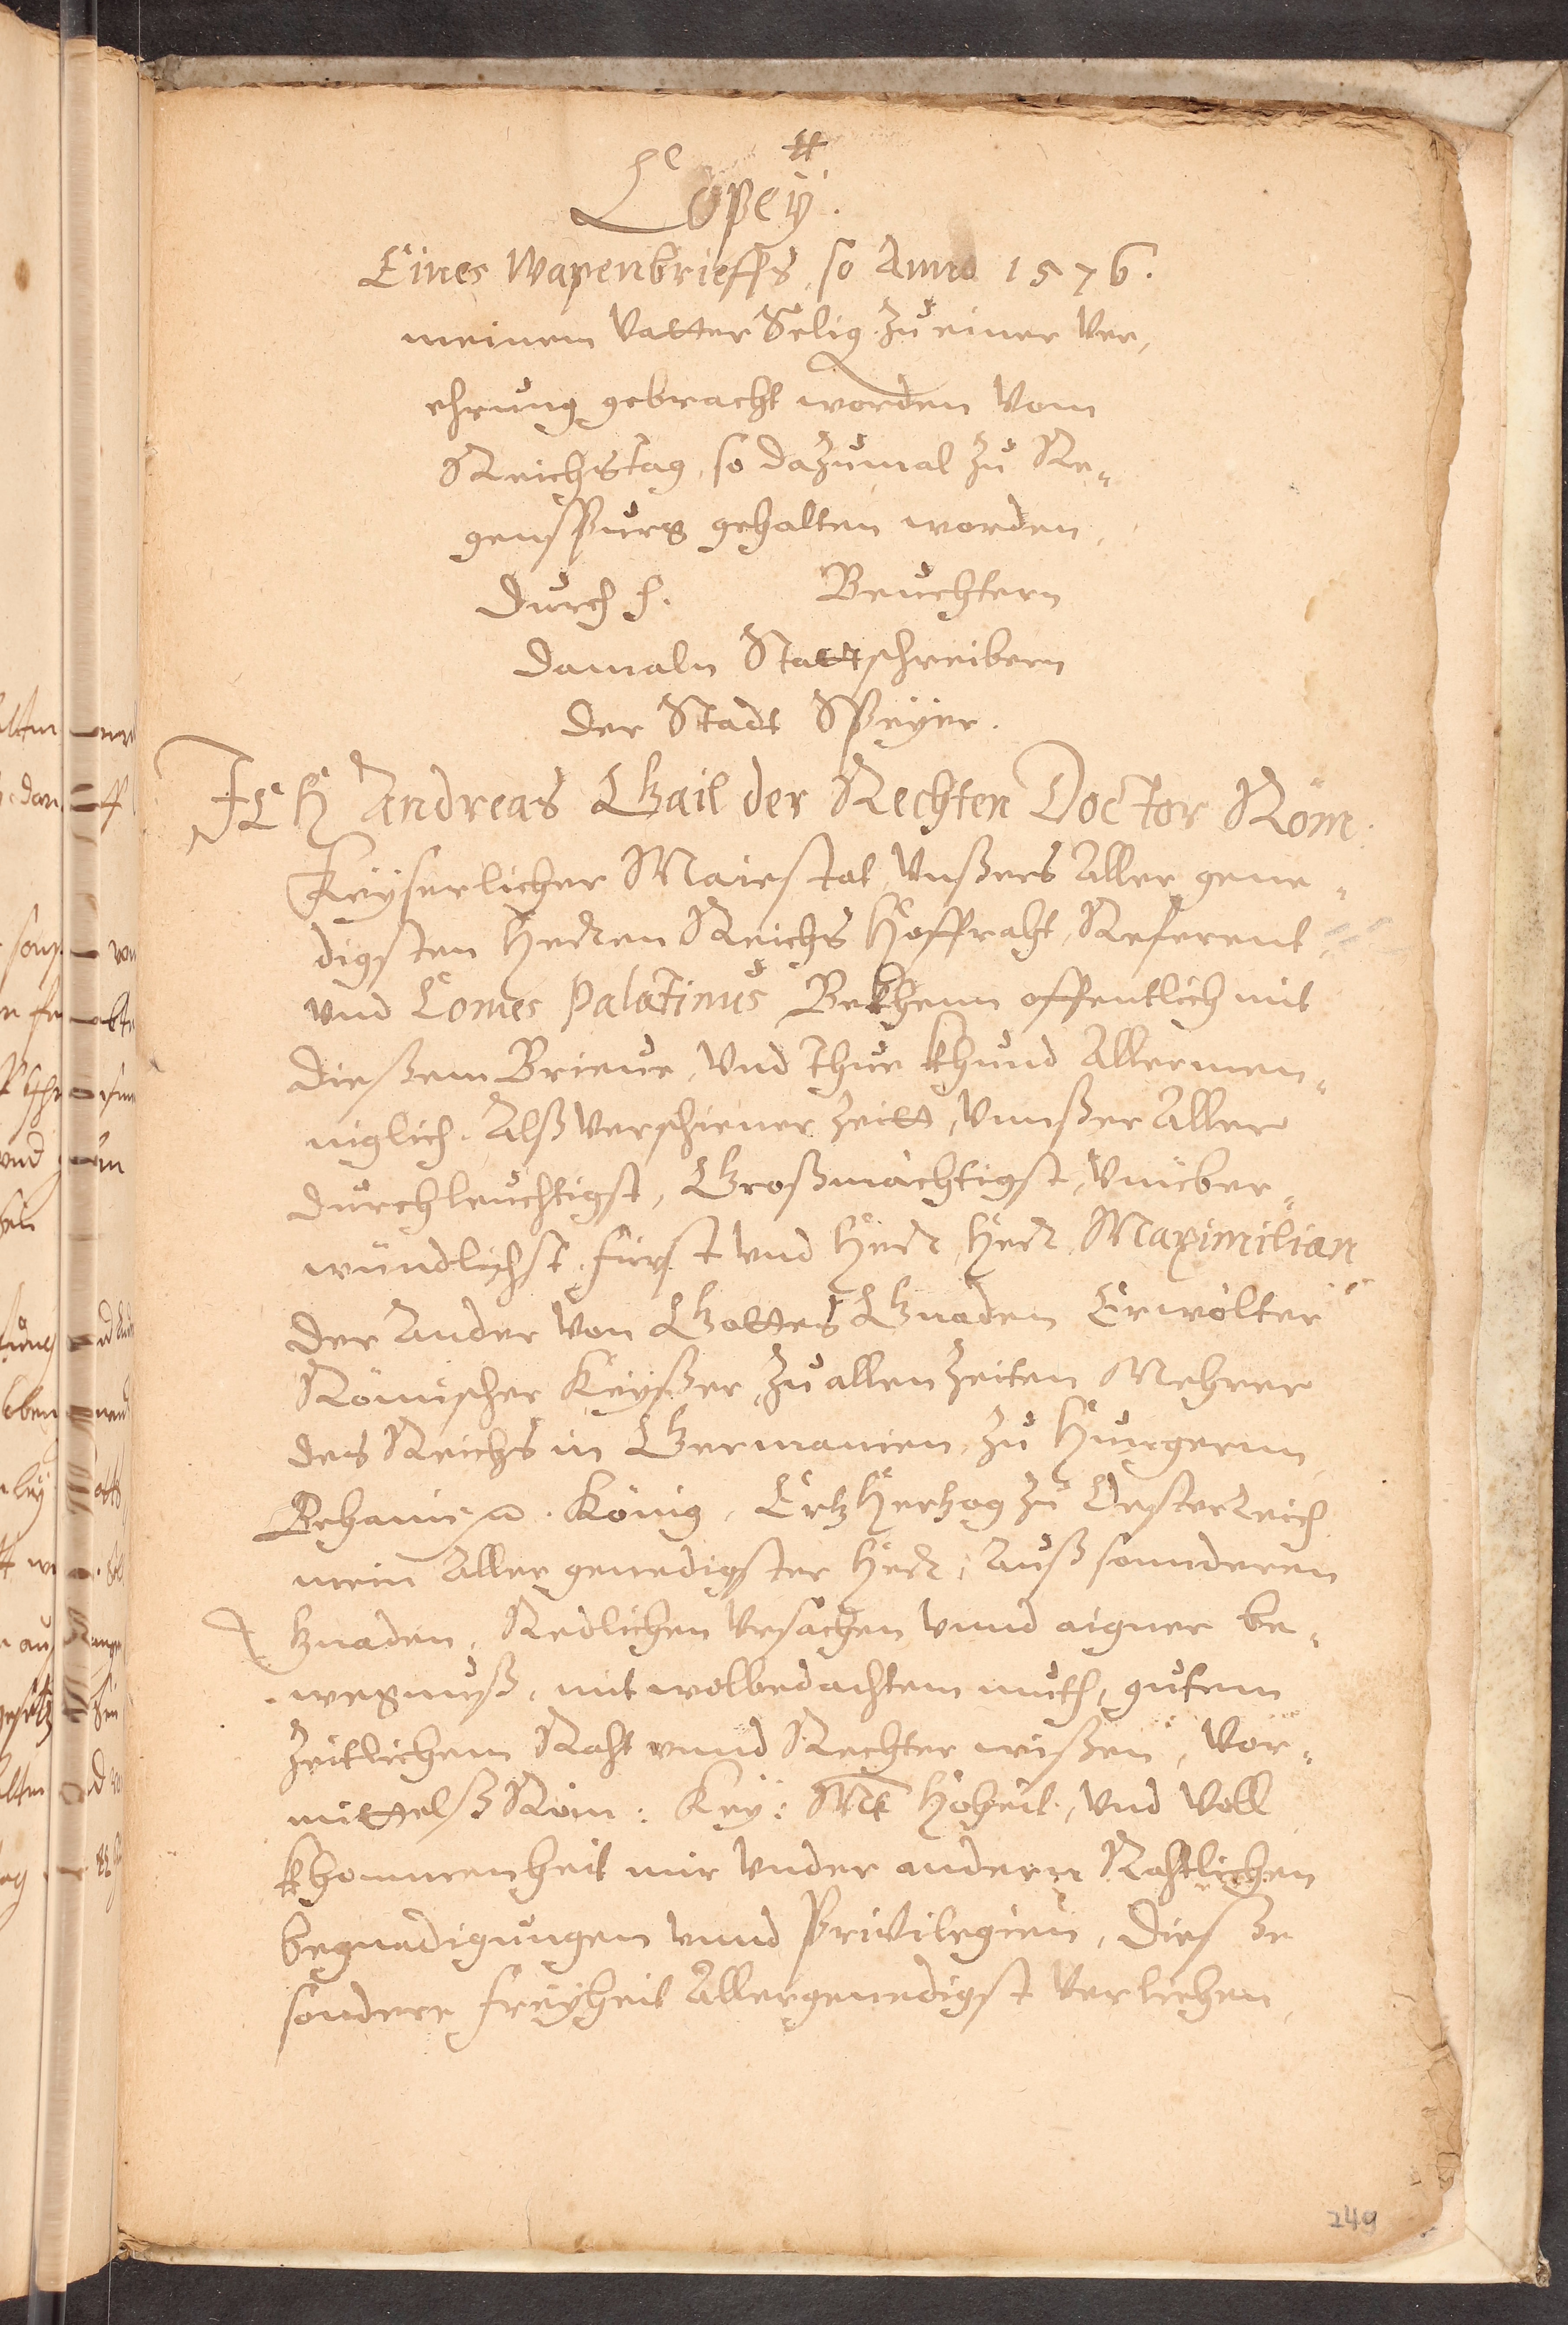 Copeÿ.
Eines Wapenbrieffs, so Anno 1576.
meinem Vatter Selig zu einer Ver,
ehrung gebracht worden Vom
Reichstag, so dazumal zu Re„
genspurg gehalten worden,
Durch h. Beuchtern
Damaln Stattschreibern
der Stadt Speÿer.
ICH Andreas Gail der Rechten Doctor Röm.
Keÿserlicher Maiestat, Vnßers Aller gene„
digsten Herren Reichs Hoffraht, Referent,
vnd Comes Palatinus Bekhenn offentlich mit
dießem Brieue, Vnd Thue khund Allermen„
niglich. Alß verschiener Zeitt, Vnnßer Aller
durchleuchtigst, Großmächtigst, Vnüber„
wündlichst, fürst vnd Herr, Herr Maximilian
der Ander Von Gottes Gnaden Erwölter
Römischer Keÿßer, Zu allen Zeiten Mehrer
des Reichs in Germanien, Zu Hungern
Behaim König, Ertz Hertzog zu Oesterreich
mein Aller genedigster Herr, Auß sonnderen
Gnaden, Redlichen Vrsachen vnnd aigner be„
wegnuß, mit wolbedachtem muth, gutem
Zeitlichem Raht vnnd Rechter wißen, Vor„
mittelß Röm: Keÿ: Mt Hoheit, Vnd Voll
khommenheit mir Vnder andern Rahtlichen
begnadigungen vnnd Privilegien, Dieße
sondere freÿheit Allergenedigst Verliehen,
249